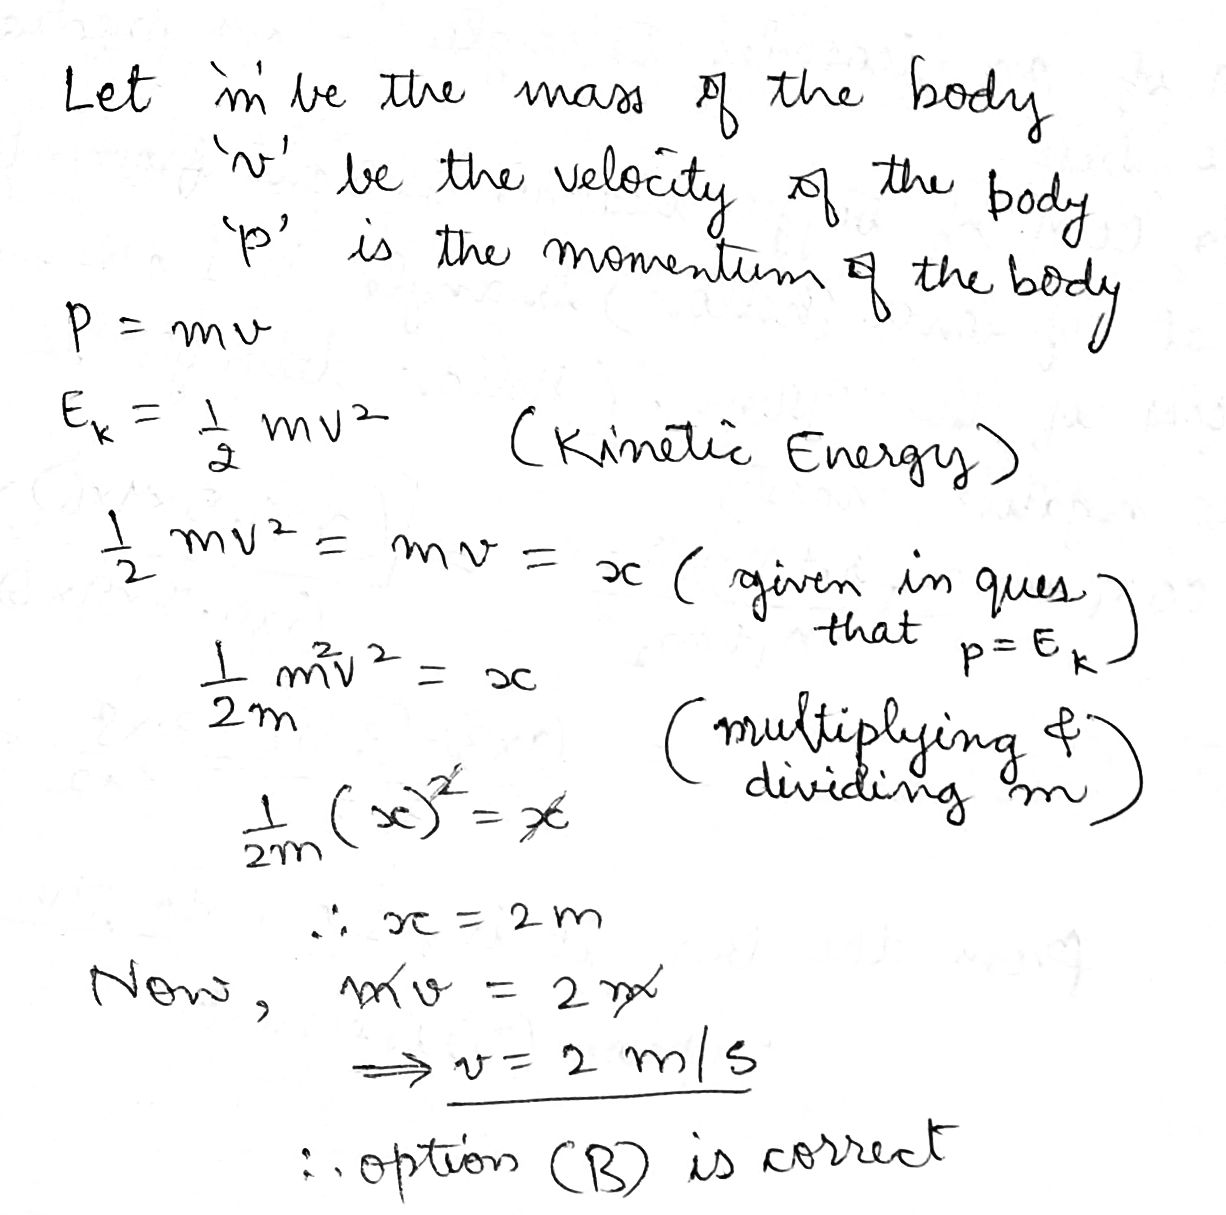 Let 'm' be the mass of the body
'v' be the velocity of the body
'p' is the momentum of the body
P = mv
E_k = 1/2 mv² (Kinetic Energy)
1/2 mv² = mv = x (given in ques that p = E_k)
1/2m m²v² = x (multiplying & dividing m)
1/2m (x)² = x
∴ x = 2m
Now, mv = 2m
⟹ v = 2 m/s
∴ option (B) is correct